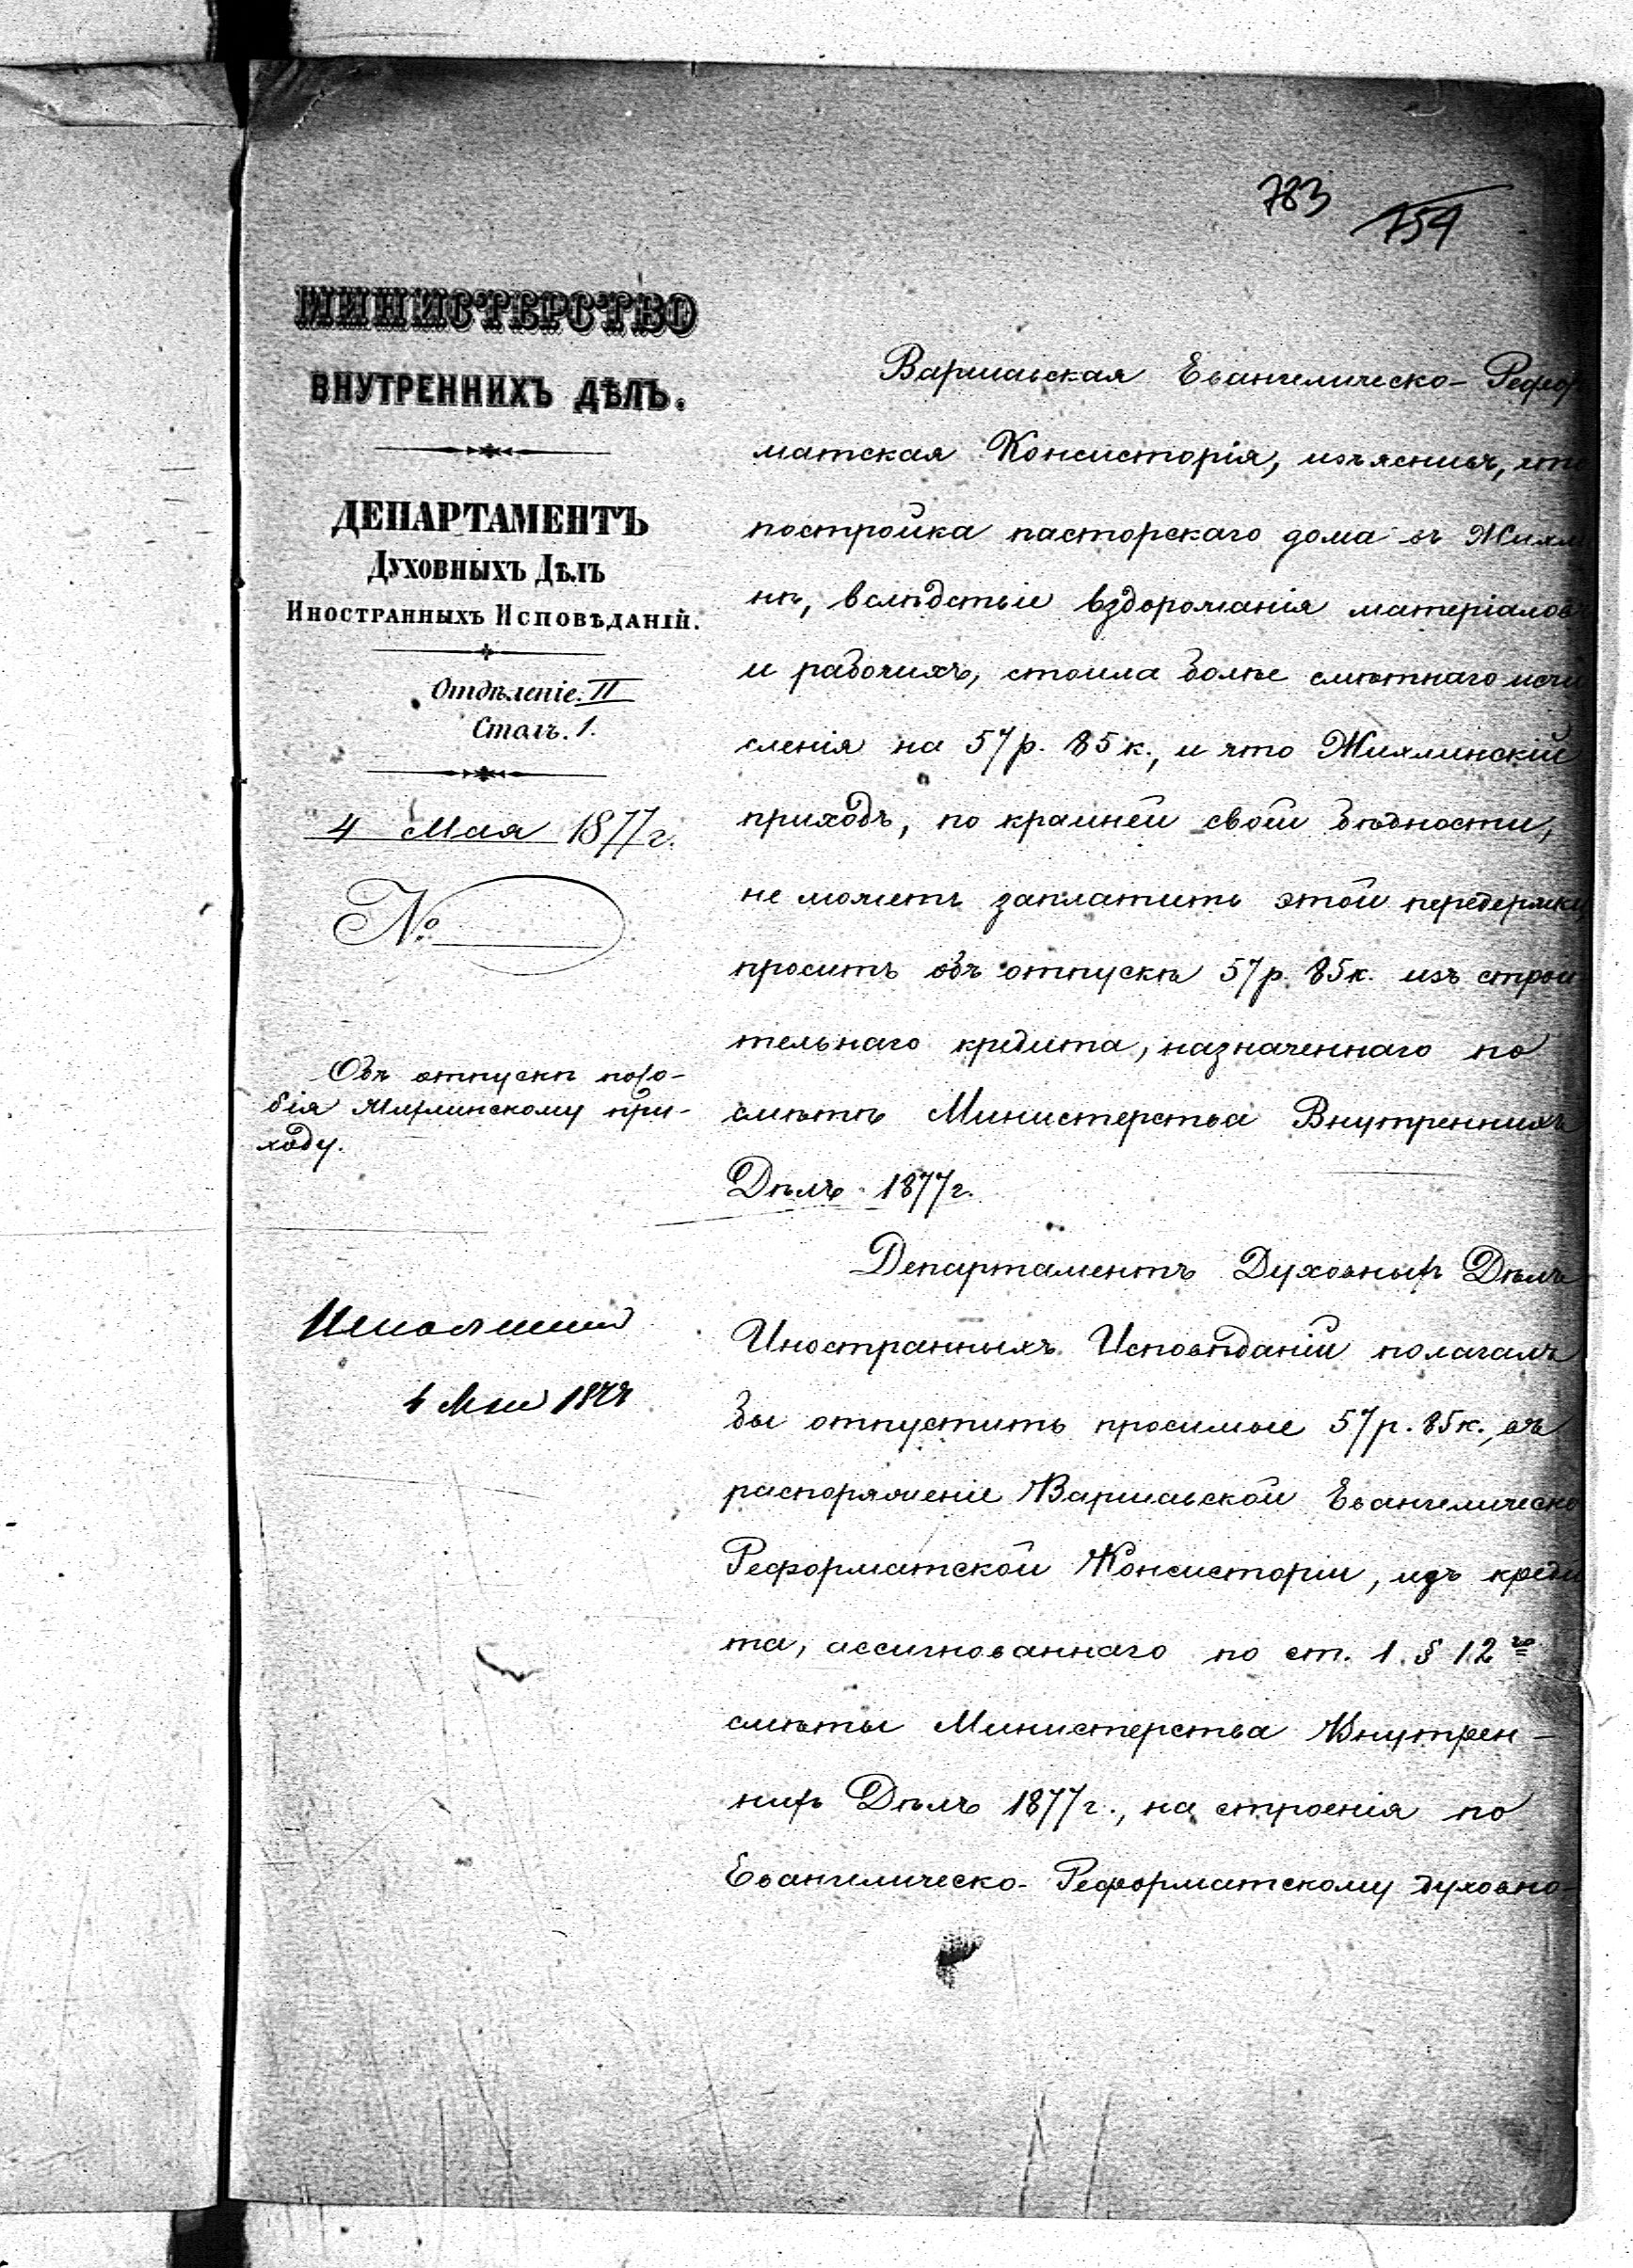 783
754
МИНИСТЕРСТВО
ВНУТРЕННИХЪ ДѢЛЪ.
ДЕПАРТАМЕНТЪ
ДУХОВНЫХЪ ДѢЛЪ
ИНОСТРАННЫХЪ ИСПОВѢДАНІЙ.
Отдѣленіе II
Столъ 1.
4 Мая 1877 г.
№
Объ отпускѣ посо-
бія Жихлинскому при-
ходу.
4 Мая 1877
Варшавская Евангелическо-Рефор
матская Консисторія, изъяснивъ, что
постройка пасторскаго дома въ Жихли
нѣ, вслѣдствіе вздорожанія матеріаловъ
и рабочихъ, стоила болѣе смѣтнаго исчи
сленія на 57 р. 85 к., и что Жихлинскій
приходъ, по крайней своей бѣдности,
не можетъ заплатить этой передержки
проситъ объ отпускѣ 57 р. 85 к. изъ строи
тельнаго кредита, назначеннаго по
смѣтѣ Министерства Внутреннихъ
Дѣлъ 1877 г.
Департаментъ Духовныхъ Дѣлъ
Иностранныхъ Исповѣданій полагалъ
бы отпустить просимые 57 р. 85 к., въ
распоряженіе Варшавской Евангелическо
Реформатской Консисторіи, изъ креди
та, ассигнованнаго по ст. 1 § 12го
смѣты Министерства Внутрен-
нихъ Дѣлъ 1877 г., на строенія по
Евангелическо-Реформатскому духовно-